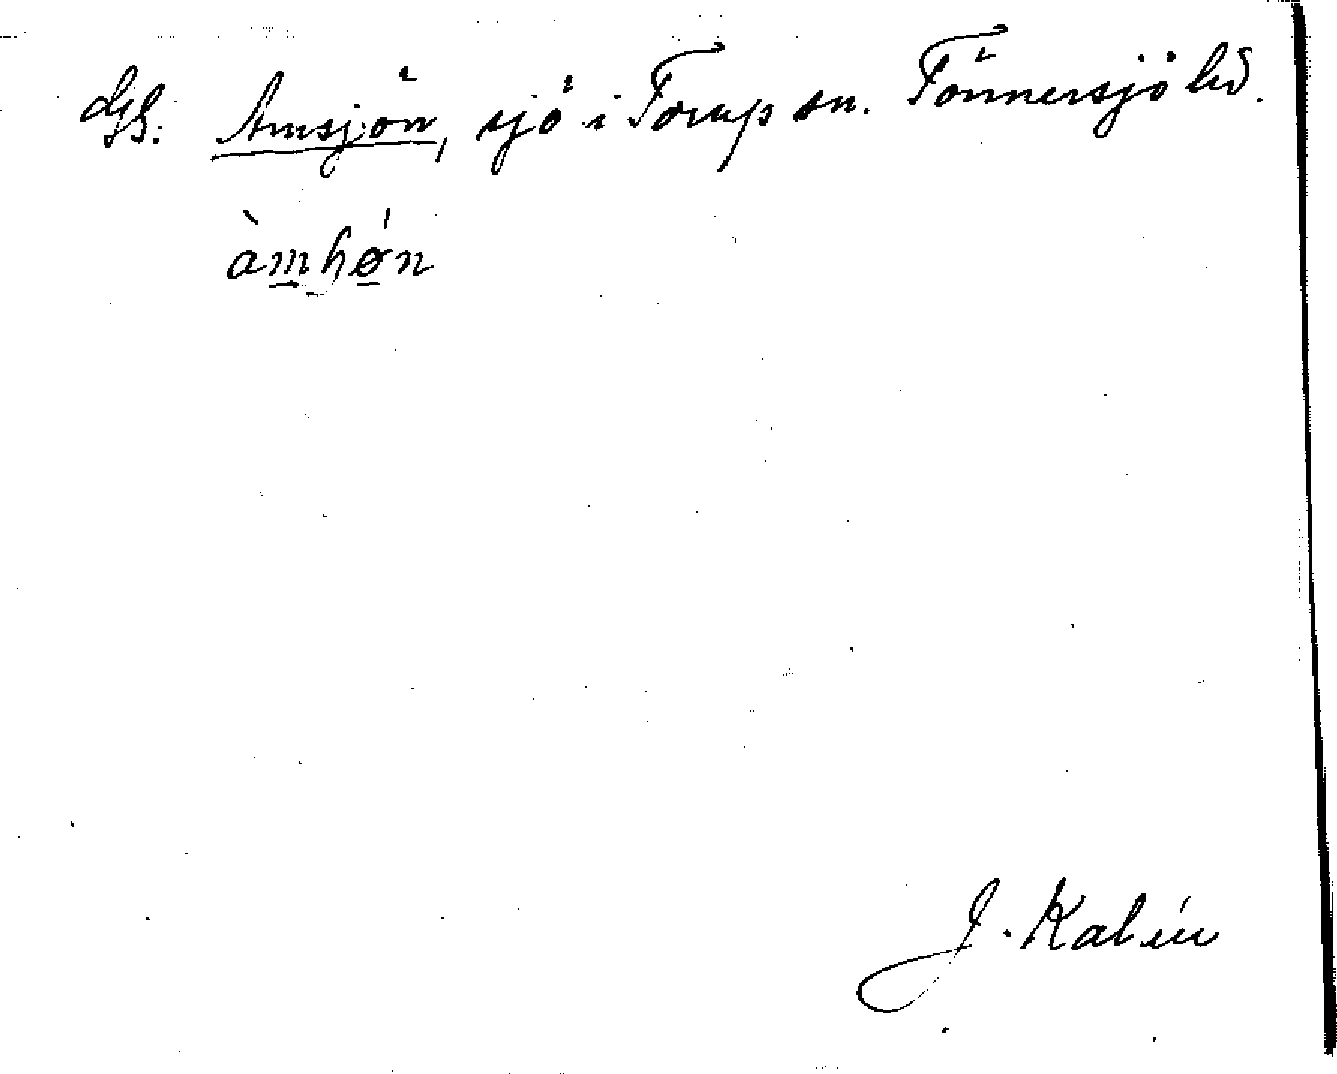 Amsjön, sjö i Torup sn. Tönnersjö hd.
àmhǿn
J. Kalén